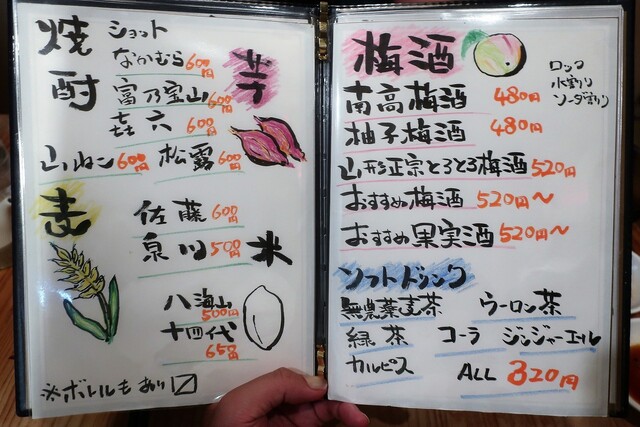 焼酎
ショット
芋
なかむら 600円
富乃宝山 600円
㐂六 600円
山ねこ 600円 松露 600円
麦
佐藤 600円
泉川 500円
米
八海山 500円
十四代 650円
※ボトルもあり〼
梅酒
ロック
水割り
ソーダ割り
南高梅酒 480円
柚子梅酒 480円
山形正宗とろとろ梅酒 520円
おすすめ梅酒 520円〜
おすすめ果実酒 520円〜
ソフトドリンク
無農薬麦茶 ウーロン茶
緑茶 コーラ ジンジャーエール
カルピス ALL 320円